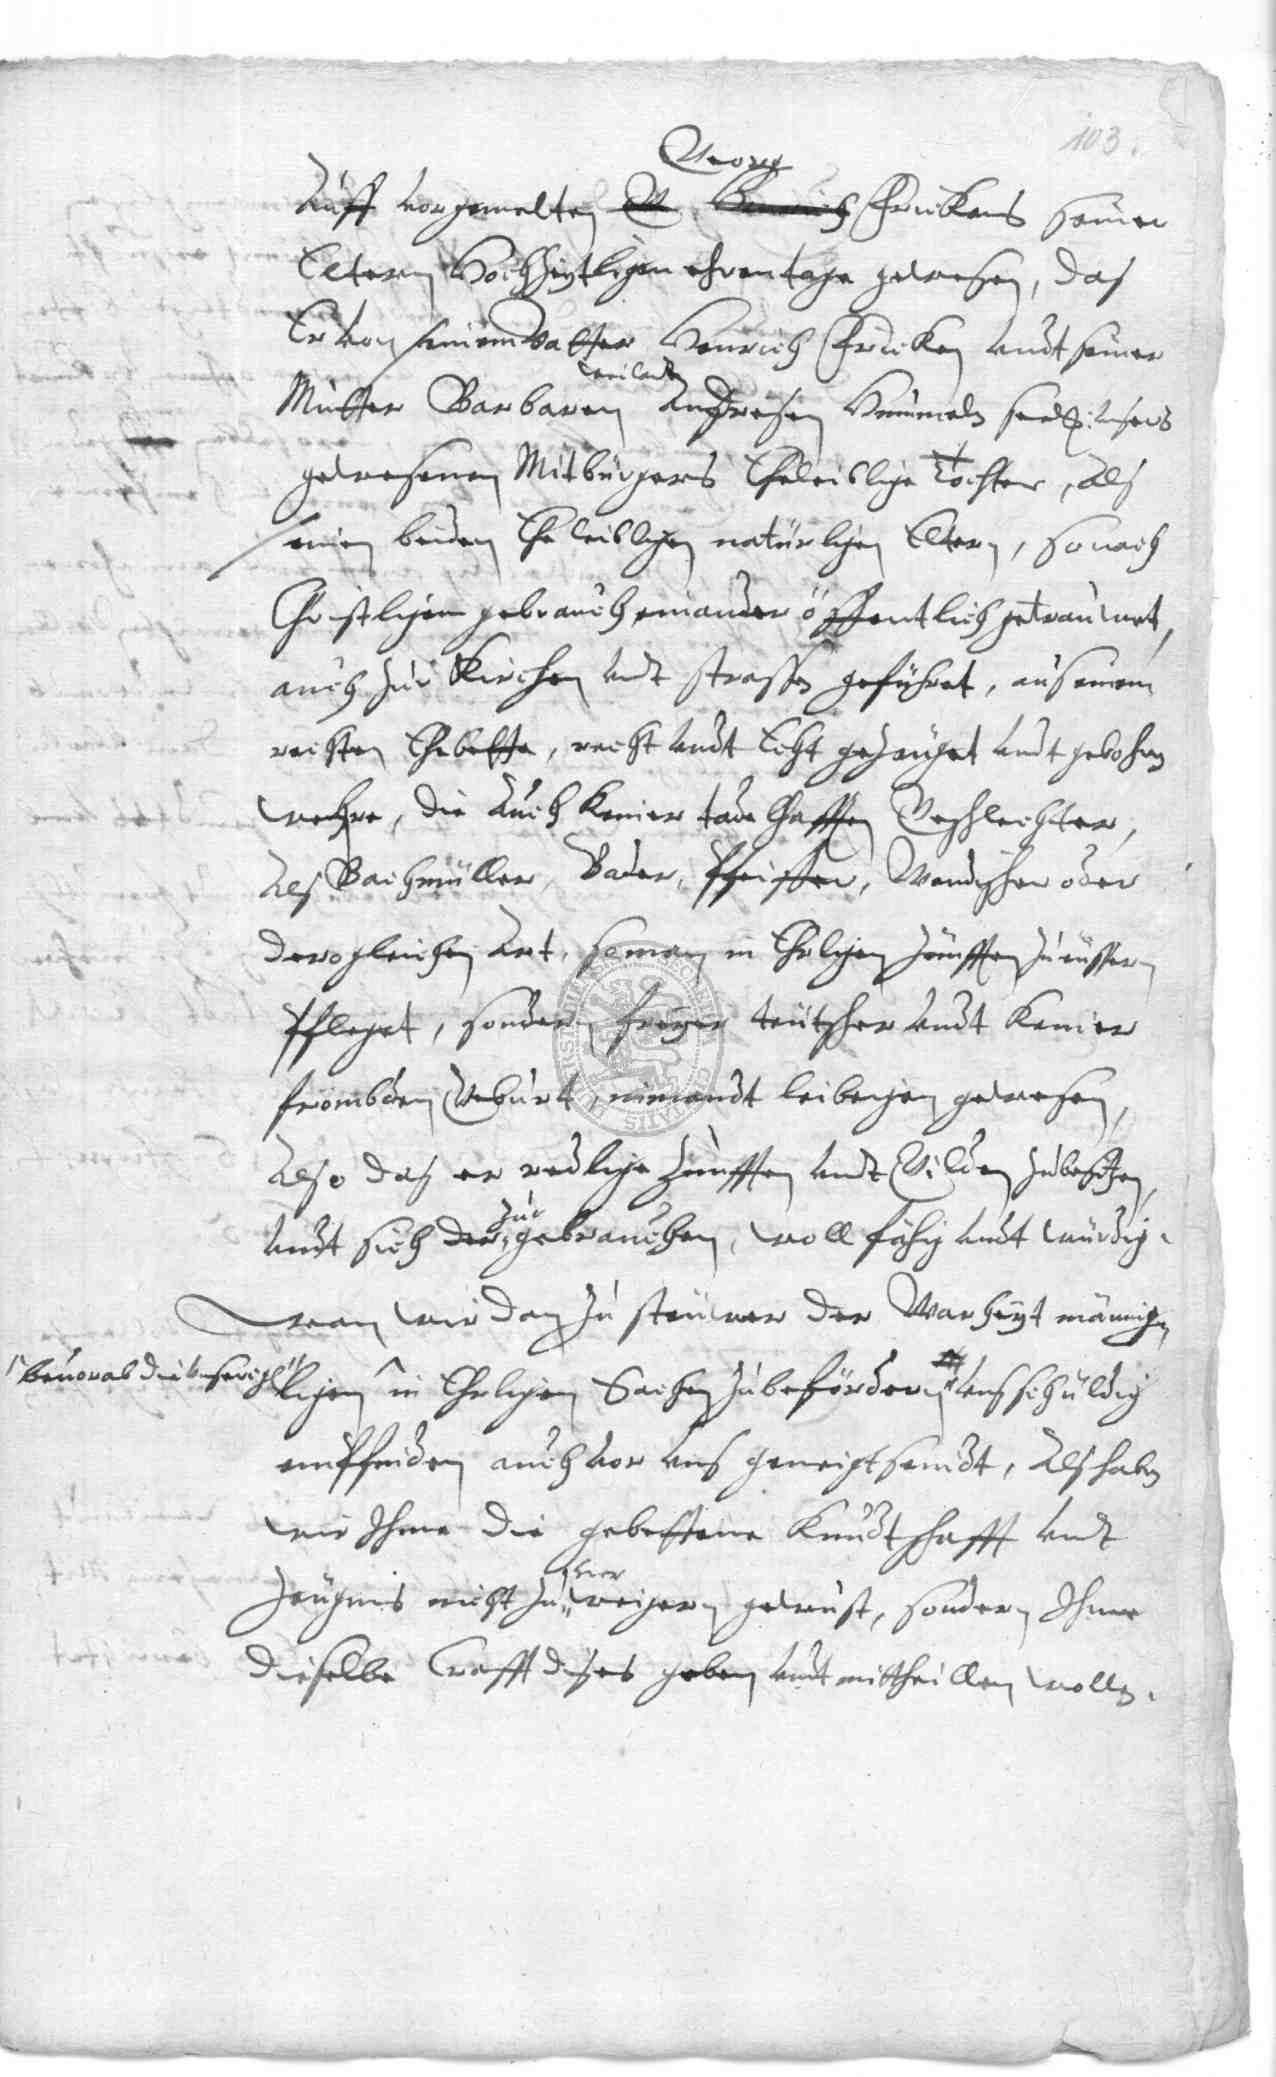 103.
Georg
Auff vorgemelten Henrich Frickens seiner
Eltern Hochzeytlichen ehrentage gewesen, das
Er von seinem Vatter Henrich Fricken undt seiner
weilandt
Mutter Barbaren Andresen Hummels seel: unsers
gewesenen Mitbürgers Eheleibliche Tochter, als
seinen beiden Eheleiblichen natürlichen Eltern, so nach
Christlichem gebrauch einander öffentlich getrauwet,
auch zur Kirchen undt strassen geführet, aus einem
rechten Ehebette, recht undt Echt gezeuget undt gebohren
wehre, die auch keiner tadelhafften Geschlechter,
als Bachmüller, Bader, Pfeiffer, Wendischer oder
derogleichen Art, so man in Ehrlichen Zünfften zu eussern
pfleget, sondern freyer teutscher undt keiner
frömbden Geburt, niemandt leibeigen gewesen,
Also das er redliche Zünfften undt Gilden zubesitzen,
zu
undt sich der gebrauchen, woll fähig undt würdig.
Wan wir dan zu steuwer der Warheyt männig
bevorab die unserige
lichen in Ehrlichen Sachen zubefördern uns schuldig
empfinden auch vor uns geneigt seindt, Als haben
wir Ihme die gebettene Kundtschafft undt
ver
Zeugnis nicht zu weigern gewust, sondern Ihme
dieselbe Crafft dieses geben undt mittheillen wollen.